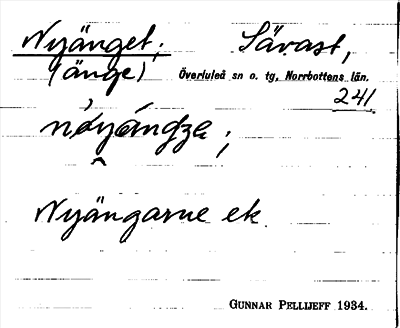 Nyänget; Sävast,
(änge) Överluleå sn o. tg, Norrbottens län.
241
Nyängarne ek.
GUNNAR PELLIJEFF 1934.